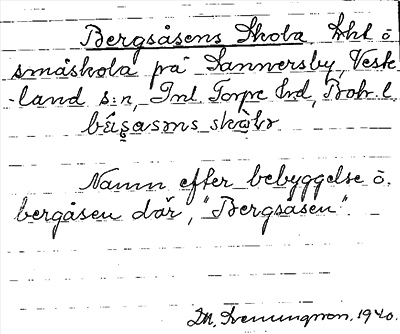 Bergsåsens Skola, kht o
småskola på Sannersby, Vesk-
land s:n, Inl. Torpe hd, Boh. l.
Namn efter bebyggelse o.
bergåsen där, "Bergsåsen".
1940.